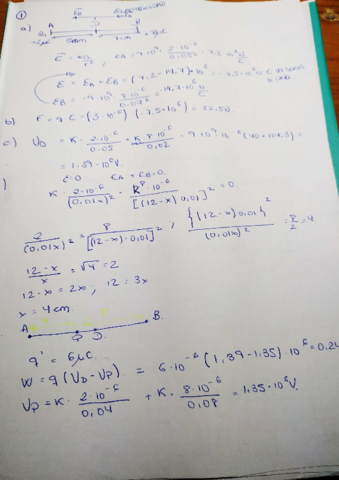 ① ELECTRICIDAD
a) A D B
+2μC 5cm 7cm 8μC
E = KQ/r² ; EA = 9·10⁹ · 2·10⁻⁶/0.05² = 7.2·10⁶ N/C
E = EA - EB = (7.2 - 14.7)·10⁶ = -7.5·10⁶ N/C
EB = 9·10⁹ · 8·10⁻⁶/0.07² = 14.7·10⁶ N/C
b) F = q·E = (3·10⁻⁶)·(7.5·10⁶) = 22.5N.
c) VD = K·2·10⁻⁶/0.05 + K·8·10⁻⁶/0.07 = 9·10⁹·10⁻⁶ (40+114.3) =
= 1.39·10⁶V.
) E=0 EA + EB=0.
K·2·10⁻⁶/(0.01x)² - K·8·10⁻⁶/[(12-x)0.01]² = 0.
2/(0.01x)² = 8/[(12-x)·0.01]² ; {(12-x)0.01}²/(0.01x)² = 8/2 = 4
12-x/x = √4 = 2
12-x = 2x ; 12 = 3x
x = 4cm
A P D B.
q' = 6μC.
W = q(VD - VP) = 6·10⁻⁶ (1,39-1.35)·10⁶ = 0.24
VP = K·2·10⁻⁶/0,04 + K·8·10⁻⁶/0,08 = 1.35·10⁶V.